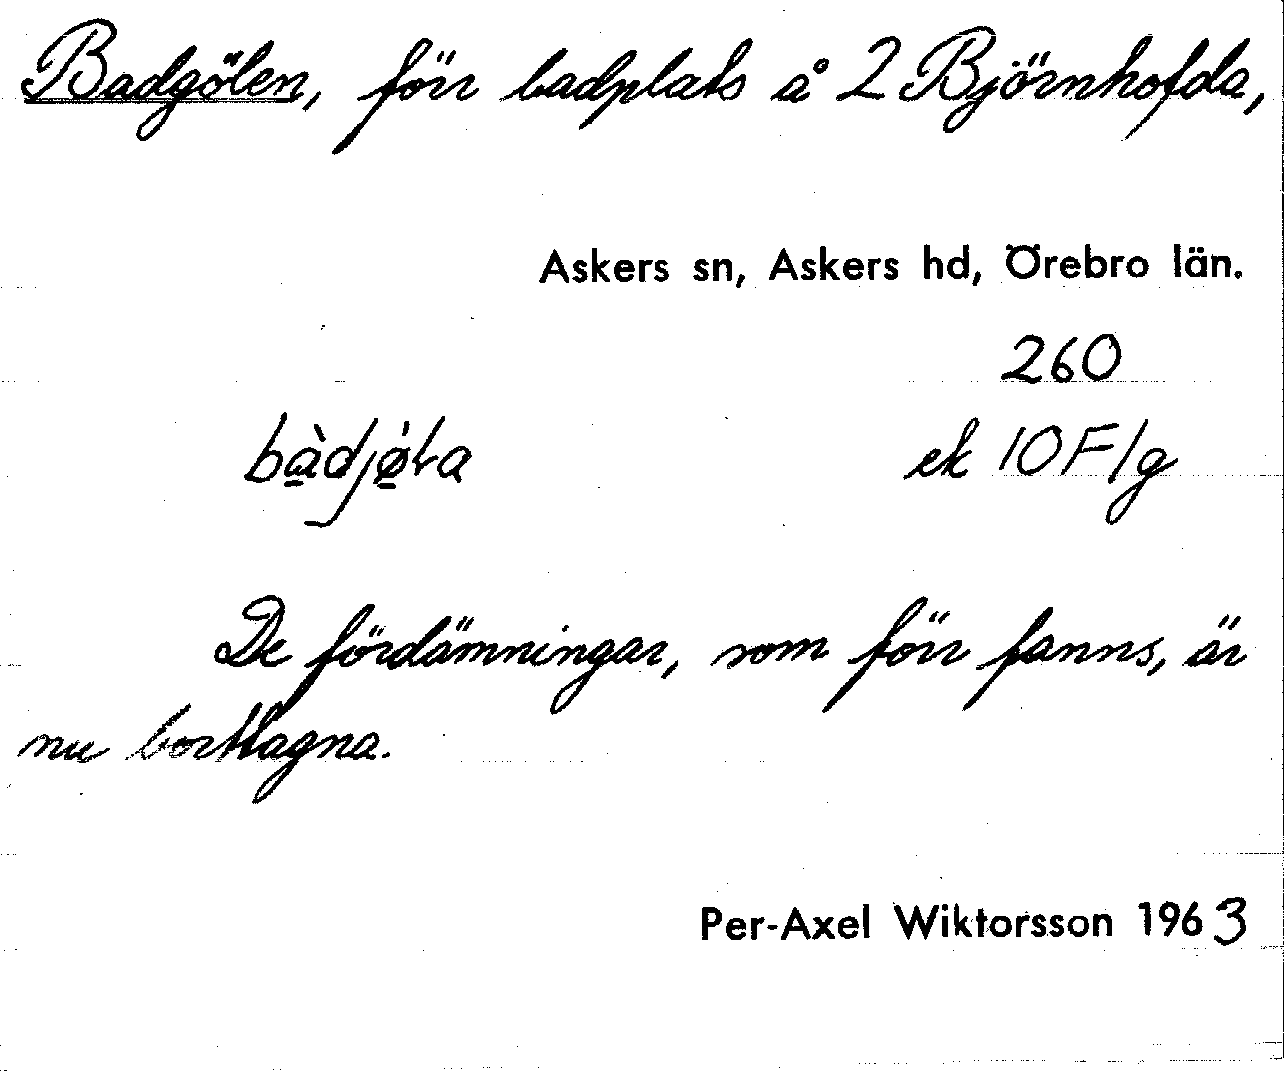 Badgölen, förr badplats å 2 Björnhofda,
Askers sn, Askers hd, Örebro län.
260
ek 10F/g
De fördämningar, som förr fanns, är
nu borttagna.
Per-Axel Wiktorsson 1963